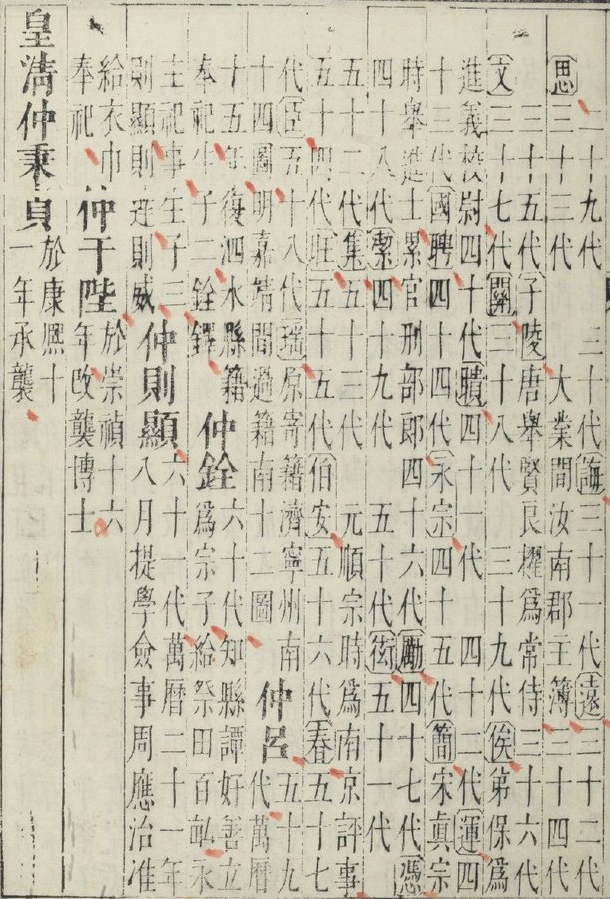 二十九代　三十代誨三十一代遠三十二代
思三十三代　大業間汝南郡主簿三十四代
三十五代子陵唐舉賢良擢爲常侍三十六代
文三十七代關三十八代　三十九代俟第保爲
進義校尉四十代瞔四十　代　四十二代運四
十三代國聘四十四代永宗四十五代簡宋真宗
時舉進士累官刑部郎四十六代勵四十七代馮
四十八代潔四十九代　五十代　五十一代
五十二代集五十三代　元順宗時爲南京評事
五十四代旺五十五代伯安五十六代春五十七
代臣五十八代瑶原寄籍濟寧州南
十四圖明嘉靖間過籍南十二圖
仲呂
五十九
代萬曆
十五年復泗水縣籍
奉祀生子二銓鐸
仲銓
六十代知縣譚好善立
爲宗子給祭田百畝永
主祀事生子三
則顯則逹則威
仲則顯
六十一代萬曆二十一年
八月提學僉事周應治准
給衣巾
奉祀
仲于陛
於崇禎十六
年改襲博士
皇淸仲秉貞
於康熙十
一年承襲